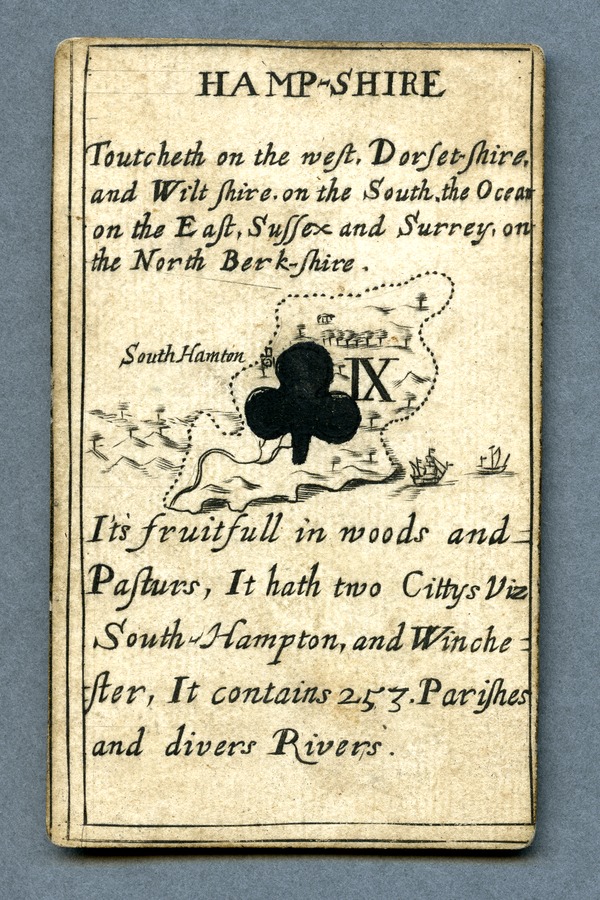 HAMP-SHIRE
Toutcheth on the west, Dorset-shire,
and Wilt shire. on the South, the Ocean
on the East, Sussex and Surrey, on
the North Berk-shire.
South Hamton
IX
It's fruitfull in woods and=
Pasturs, It hath two Cittys Viz
South-Hampton, and Winche=
ster, It contains 253. Parishes
and divers Rivers.